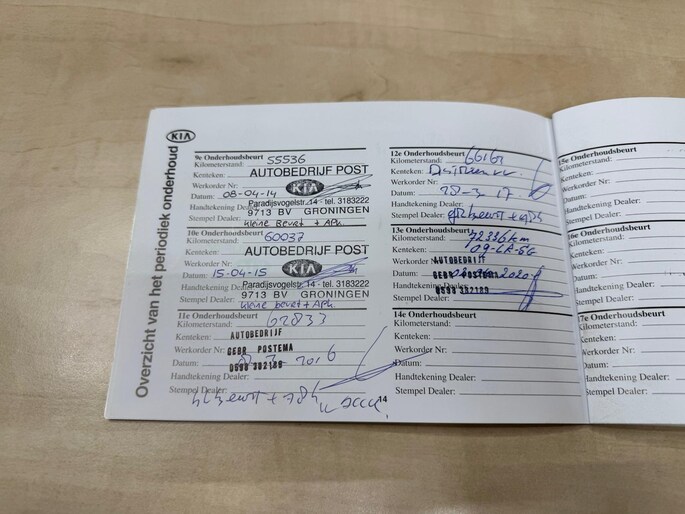 Overzicht van het periodiek onderhoud
KIA
9e Onderhoudsbeurt
Kilometerstand: 55536
Kenteken: AUTOBEDRIJF POST
Werkorder Nr: KIA
Datum: 08-04-14
Paradijsvogelstr. 14 - tel. 3183222
Handtekening Dealer:
9713 BV GRONINGEN
Stempel Dealer: kleine Beurt + APK.
10e Onderhoudsbeurt
Kilometerstand: 60037
Kenteken: AUTOBEDRIJF POST
Werkorder Nr: KIA
Datum: 15-04-15
Paradijsvogelstr. 14 - tel. 3183222
Handtekening Dealer:
9713 BV GRONINGEN
Stempel Dealer: kleine beurt + APK.
11e Onderhoudsbeurt
Kilometerstand: 62833
Kenteken: AUTOBEDRIJF
Werkorder Nr: GEBR POSTEMA
Datum: 2016
0598 392189
Handtekening Dealer:
Stempel Dealer:
12e Onderhoudsbeurt
Kilometerstand: 66161
Kenteken:
Werkorder Nr:
Datum: 28-3-17
Handtekening Dealer:
Stempel Dealer:
13e Onderhoudsbeurt
Kilometerstand: 72336 km
Kenteken: 09-LR-SG
Werkorder Nr: AUTOBEDRIJF
Datum: GEBR POSTEMA 2020
Handtekening Dealer: 0598 392189
Stempel Dealer:
14e Onderhoudsbeurt
Kilometerstand:
Kenteken:
Werkorder Nr:
Datum:
Handtekening Dealer:
Stempel Dealer:
14
15e Onderhoudsbeurt
Kilometerstand:
Kenteken:
Werkorder Nr:
Datum:
Handtekening
Stempel Dealer:
16e Onderhoudsbeurt
Kilometerstand:
Kenteken:
Werkorder Nr:
Datum:
Handtekening
Stempel Dealer:
17e Onderhoudsbeurt
Kilometerstand:
Kenteken:
Werkorder Nr:
Datum:
Handtekening
Stempel Dealer: